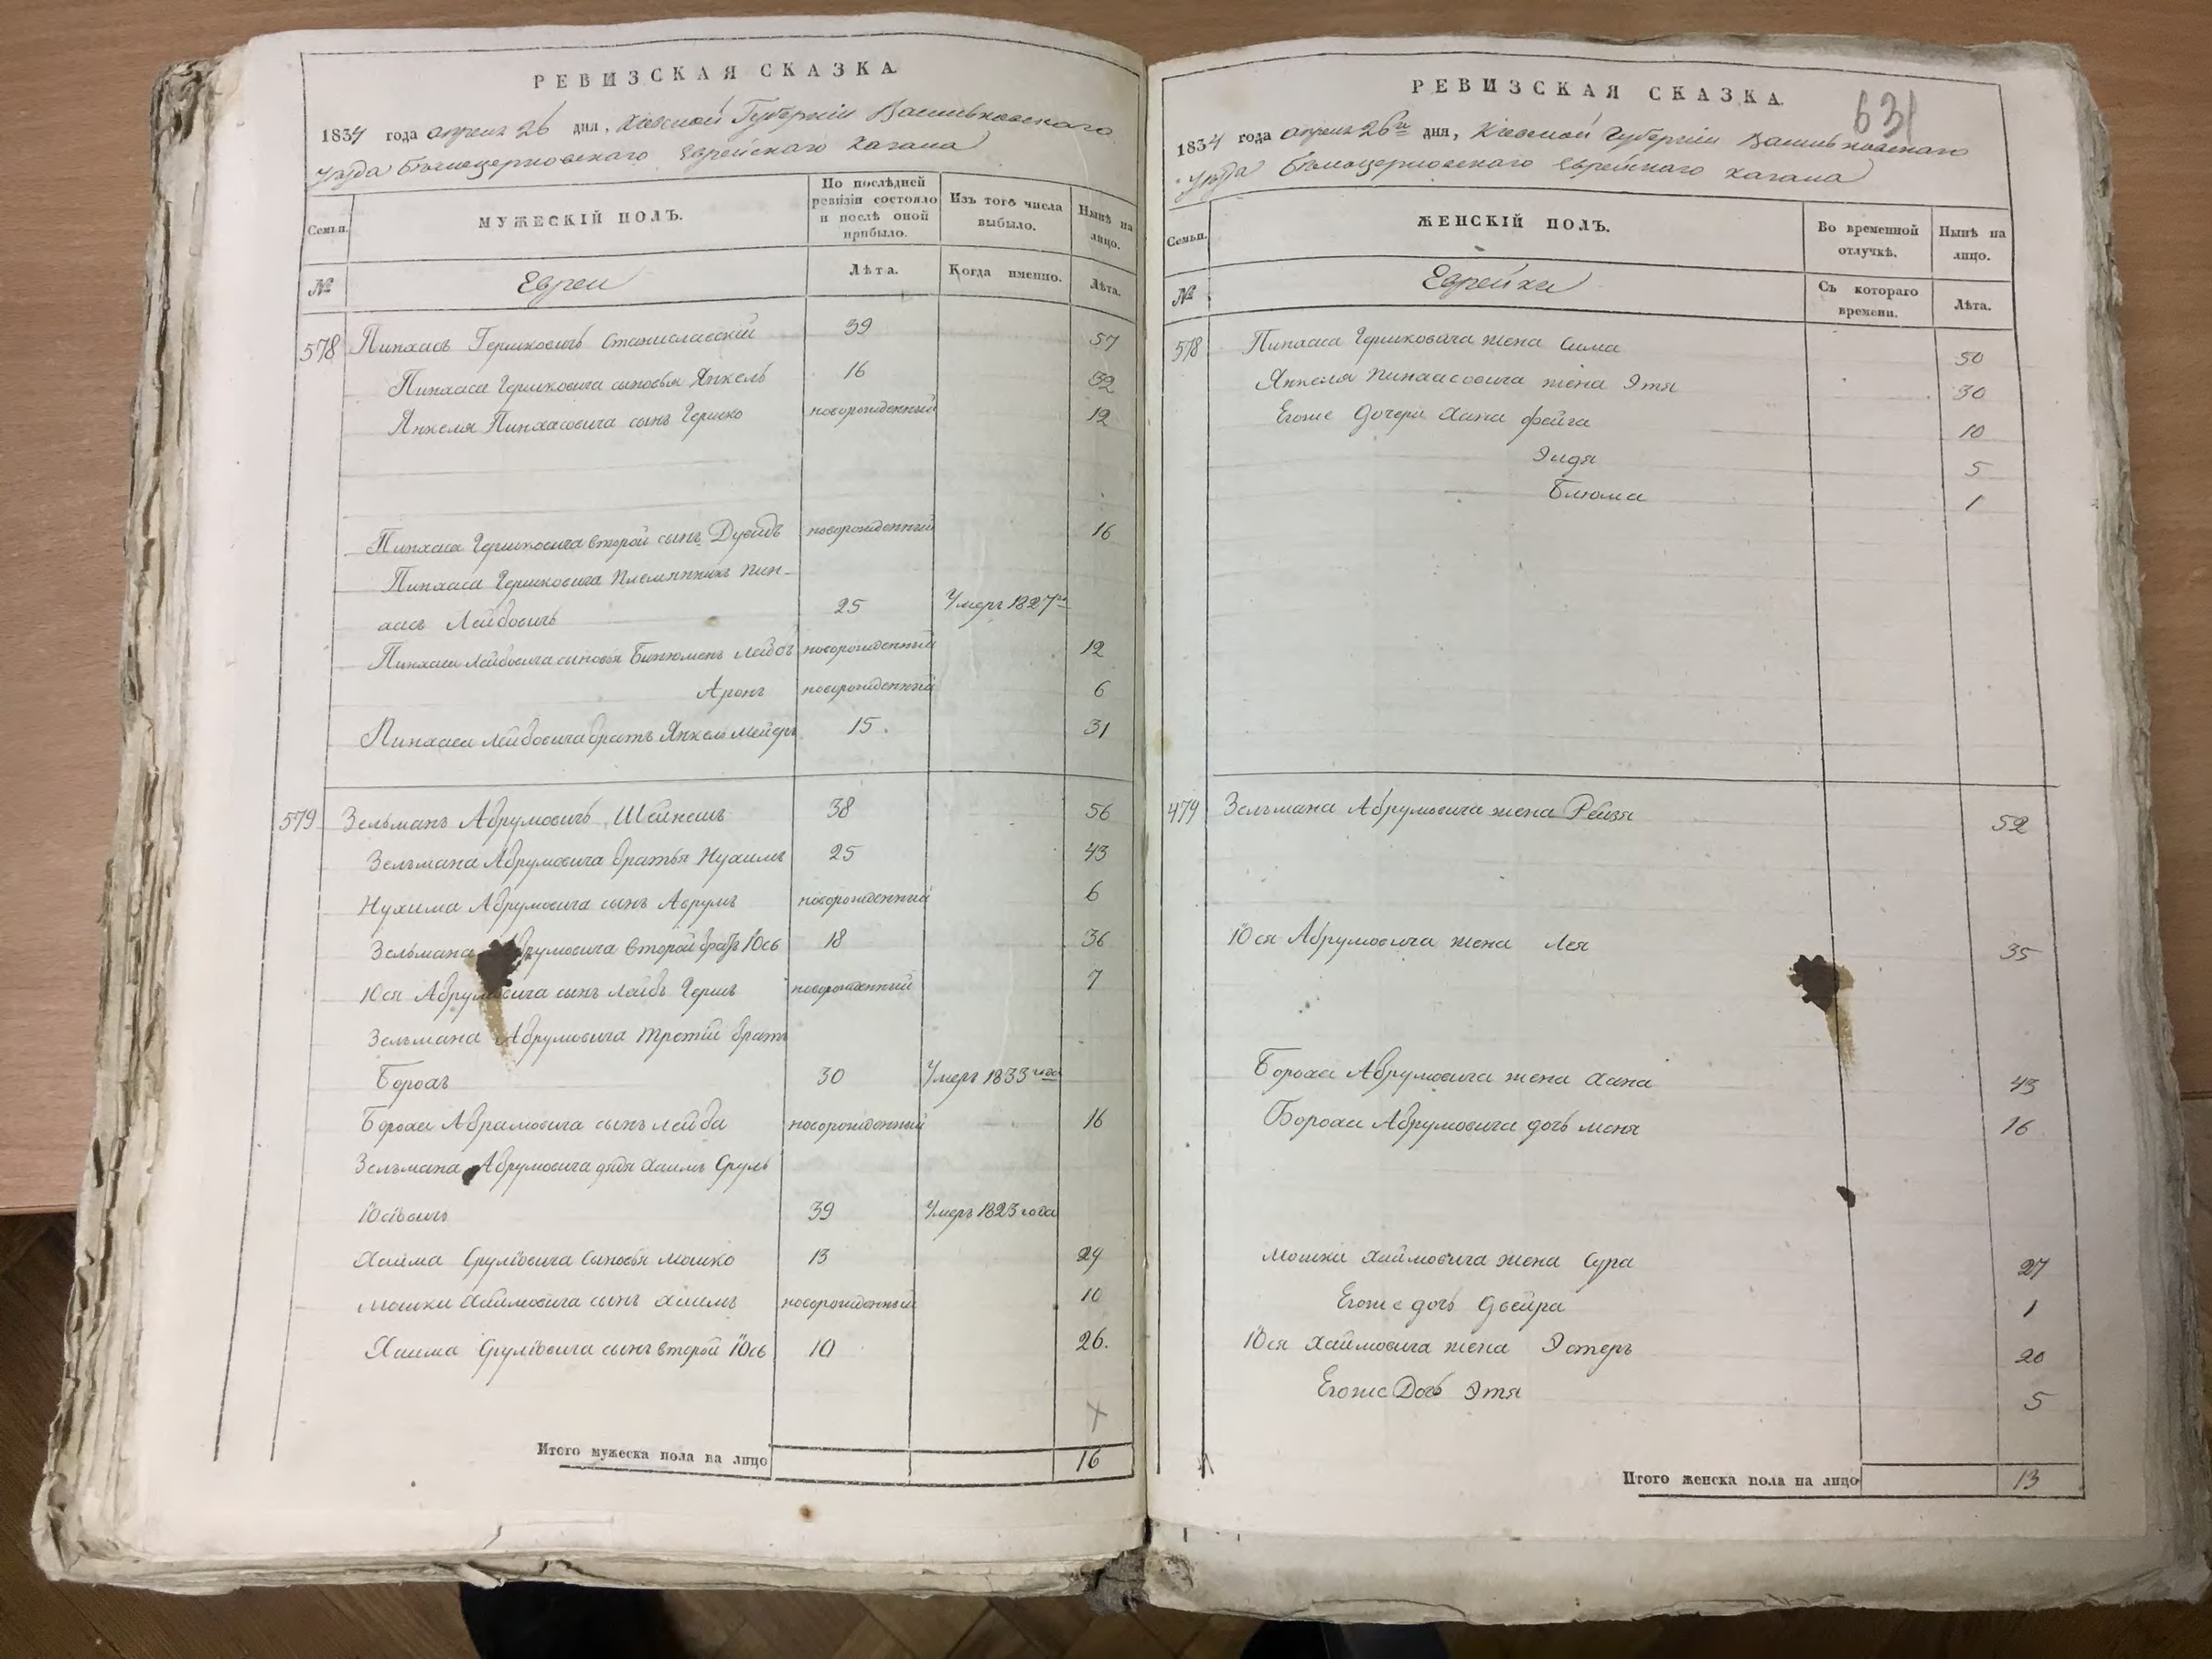 РЕВИЗСКАЯ СКАЗКА.
1834 года апреля 26 дня, Киевской Губернии Васильковскаго
уезда Белоцерковскаго Еврейскаго Кагала
Семьи.
МУЖЕСКІЙ ПОЛЪ.
По послѣдней ревизіи состояло и послѣ оной прибыло.
Изъ того числа выбыло.
Нынѣ на лицо.
№
Евреи
Лѣта.
Когда именно.
Лѣта.
578 Пинхасъ Гершковичъ Станиславскій 39 57
Пинхаса Гершковича сыновья Янкель 16 32
Янкеля Пинхасовича сынъ Гершко новорожденный 12
Пинхаса Гершковича второй сынъ Дувидъ новорожденный 16
Пинхаса Гершковича племянникъ Пин-
хасъ Лейбовичъ 25 Умеръ 1827го
Пинхаса Лейбовича сыновья Бинюменъ Лейбъ новорожденный 12
Аронъ новорожденный 6
Пинхаса Лейбовича братъ Янкель Мейеръ 15. 31
579 Зельманъ Абрумовичъ 38 56
Зельмана Абрумовича братья Нухимъ 25 43
Нухима Абрумовича сынъ Абрумъ новорожденный 6
Зельмана Абрумовича второй братъ Іось 18 36
Іося Абрумовича сынъ Лейбъ Гершъ новорожденный 7
Зельмана Абрумовича третій братъ
Борохъ 30 Умеръ 1833 года
Бороха Абрамовича сынъ Лейба новорожденный 16
Зельмана Абрумовича дядя Хаимъ Сруль
Іосіовичъ 39 Умеръ 1823 года
Хаима Сруліовича сыновья Мошко 13 29
Мошки Хаймовича сынъ Хаимъ новорожденный 10
Хаима Сруліовича сынъ второй Іось 10 26.
Итого мужеска пола на лицо 16
631
РЕВИЗСКАЯ СКАЗКА.
1834 года апреля 26го дня, Киевской Губернии Васильковскаго
уезда Белоцерковскаго Еврейскаго Кагала
Семьи.
ЖЕНСКІЙ ПОЛЪ.
Во временной отлучкѣ.
Нынѣ на лицо.
№
Еврейки
Съ котораго времени.
Лѣта.
578 Пинхаса Гершковича жена Сима 50
Янкеля Пинхасовича жена Этя 30
Егоже дочери Хана Фейга 10
Эидя 5
Блюма 1
479 Зельмана Абрумовича жена Рейзя 52
Іося Абрумовича жена Лея 35
Бороха Абрумовича жена Хана 43
Бороха Абрумовича дочь Меня 16
Мошки Хаймовича жена Сура 27
Егоже дочь Двейра 1
Іося Хаймовича жена Эстеръ 20
Егоже Дочь Этя 5
Итого женска пола на лицо 13